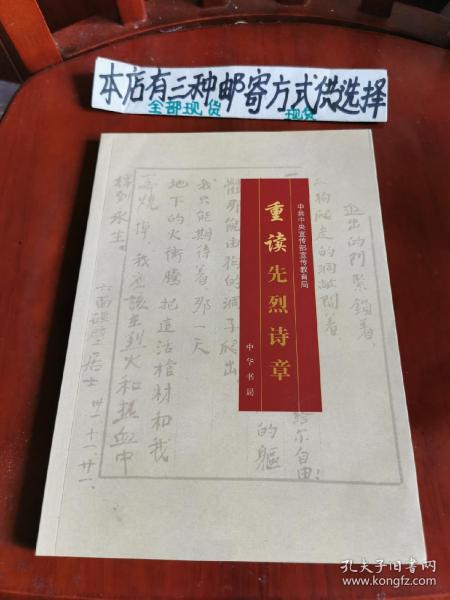 本店有三种邮寄方式供选择
全部现货
现货
中共中央宣传部宣传教育局
重读先烈诗章
中华书局
进出的门紧鎖着
狗爬走的洞敞開着
给尔自由!
的軀
體那能由狗的洞子爬出
我只能期待着那一天
地下的火衝騰把這活棺材和我
燒掉,我應該在烈火和熱血中
得到永生。
六面碰壁居士 卅一、十一、廿一、
孔夫子旧书网
www.kongfz.com